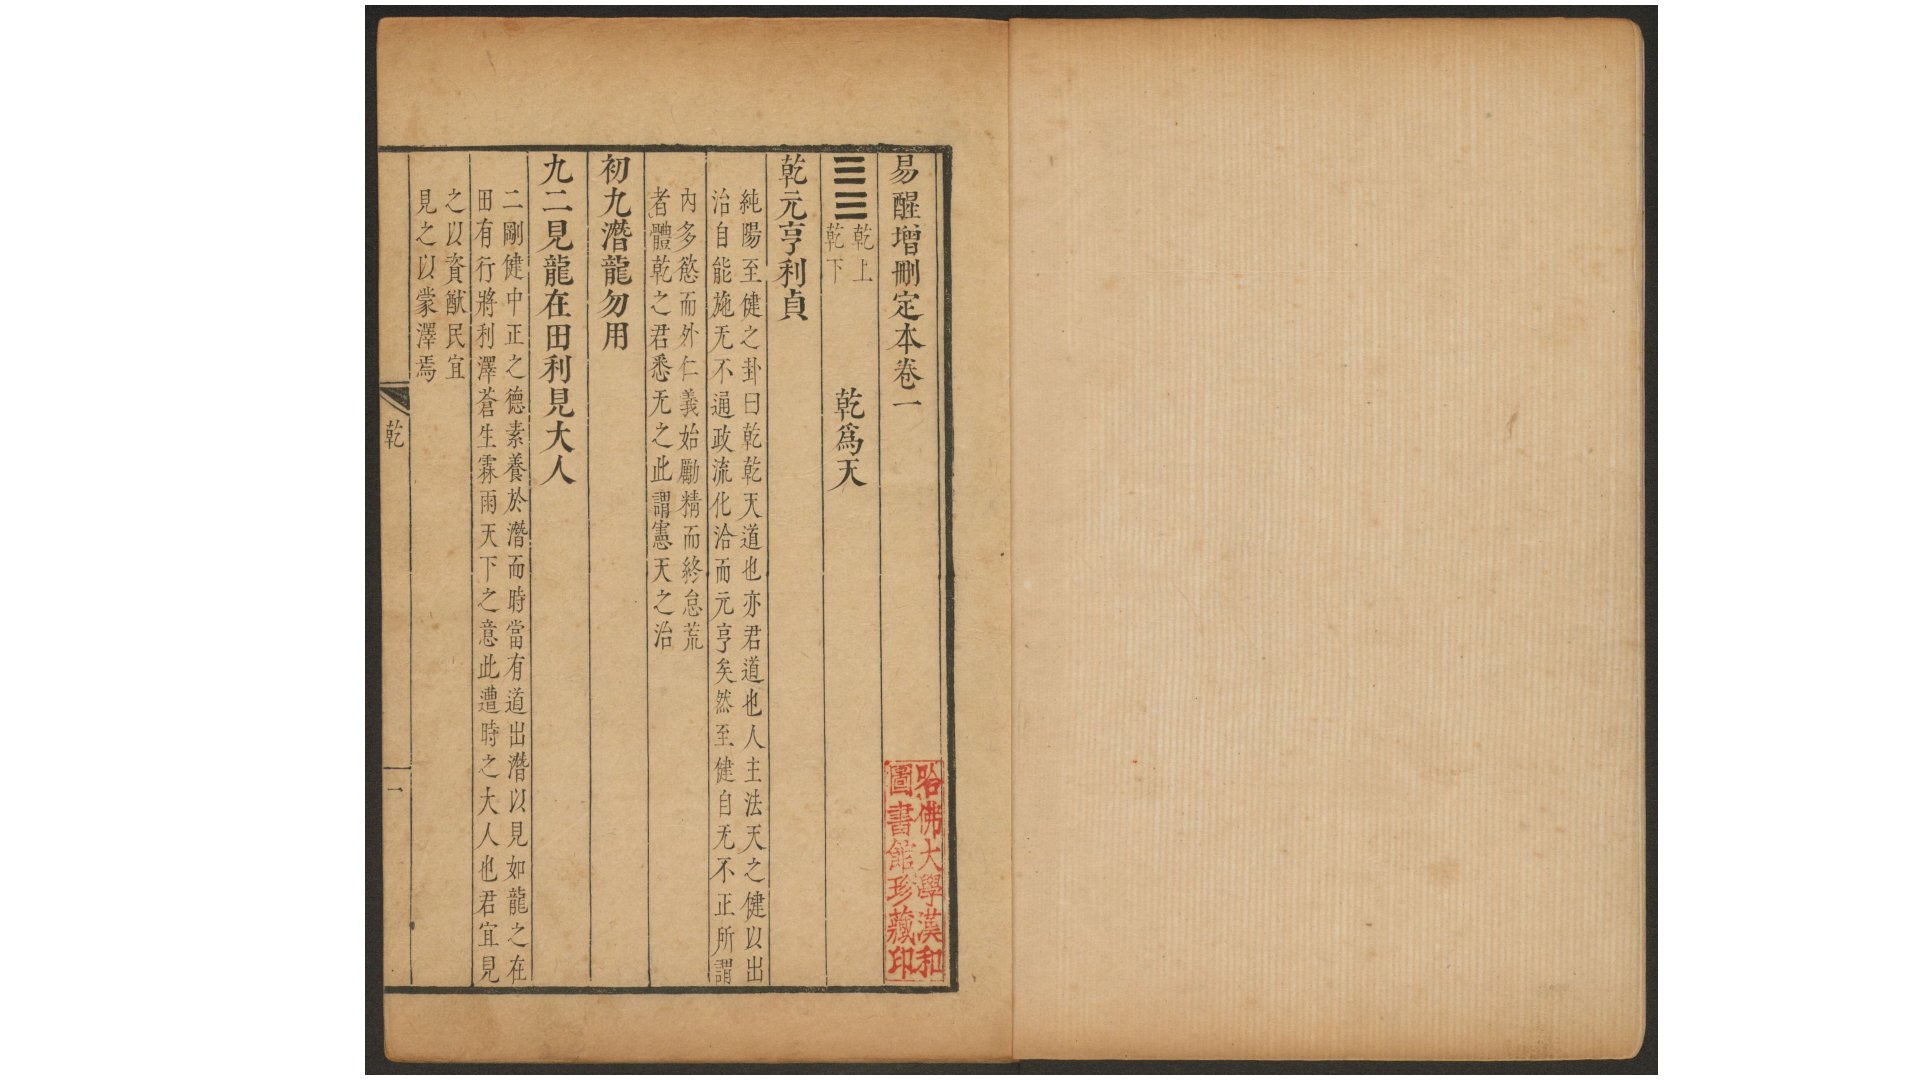 易醒增刪定本卷一
哈佛大學漢和
圖書館珍藏印
乾上
乾下
乾爲天
乾元亨利貞
純陽至健之卦曰乾乾天道也亦君道也人主法天之健以出
治自能施无不通政流化洽而元亨矣然至健自无不正所謂
內多慾而外仁義始勵精而終怠荒
者體乾之君悉无之此謂憲天之治
初九潛龍勿用
九二見龍在田利見大人
二剛健中正之德素養於潛而時當有道出潛以見如龍之在
田有行將利澤蒼生霖雨天下之意此遭時之大人也君宜見
之以資猷民宜
見之以蒙澤焉
乾
一